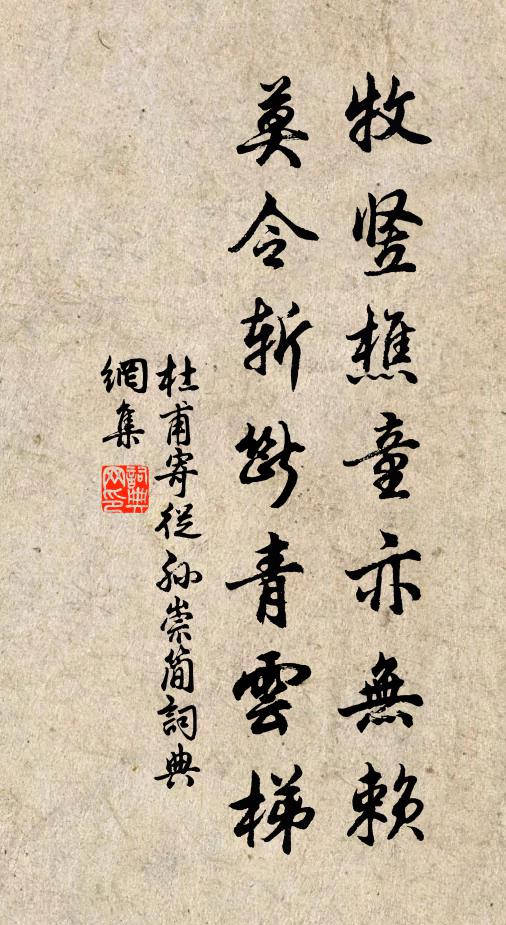 牧竖樵童亦無賴
莫令斬斷青雲梯
杜甫寄從孫崇簡詞典
網集
詞典
网印